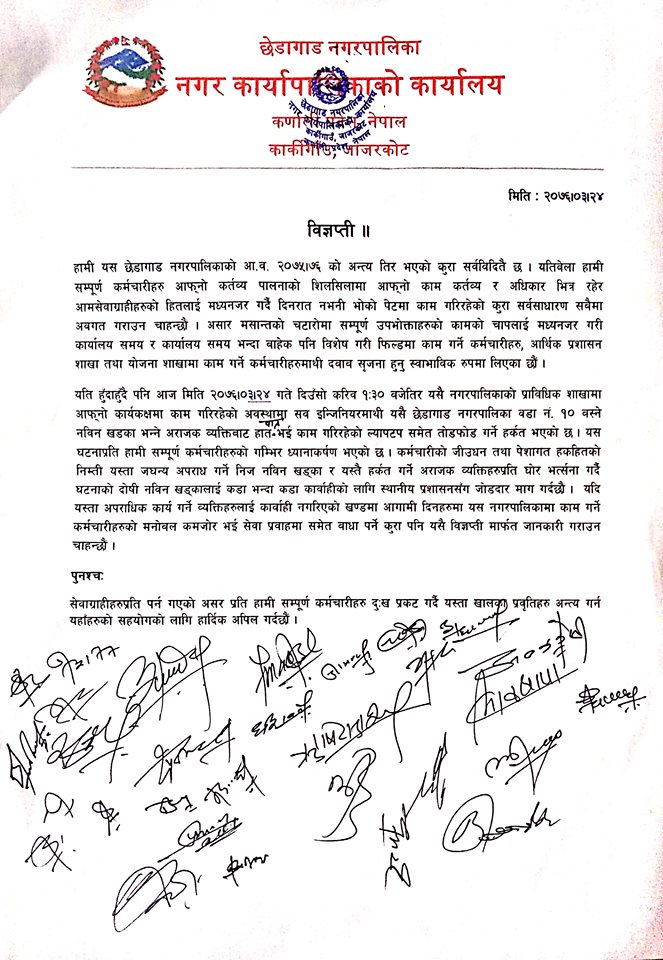 छेडागाड नगरपालिका
नगर कार्यापालिकाको कार्यालय
कर्णाली प्रदेश, नेपाल
कार्कीगाउँ, जाजरकोट
छेडागाड नगरपालिका
नगर कार्यपालिकाको कार्यालय
कार्कीगाउँ, जाजरकोट
कर्णाली प्रदेश, नेपाल
मिति : २०७६।०३।२४
विज्ञप्ती ॥
हामी यस छेडागाड नगरपालिकाको आ.व. २०७५।७६ को अन्त्य तिर भएको कुरा सर्वविदितै छ । यतिवेला हामी
सम्पूर्ण कर्मचारीहरु आफ्नो कर्तव्य पालनाको शिलसिलामा आफ्नो काम कर्तव्य र अधिकार भित्र रहेर
आमसेवाग्राहीहरुको हितलाई मध्यनजर गर्दै दिनरात नभनी भोको पेटमा काम गरिरहेको कुरा सर्वसाधारण सवैमा
अवगत गराउन चाहन्छौ । असार मसान्तको चटारोमा सम्पूर्ण उपभोक्ताहरुको कामको चापलाई मध्यनजर गरी
कार्यालय समय र कार्यालय समय भन्दा बाहेक पनि विशेष गरी फिल्डमा काम गर्ने कर्मचारीहरु, आर्थिक प्रशासन
शाखा तथा योजना शाखामा काम गर्ने कर्मचारीहरुमाथी दवाव सृजना हुनु स्वाभाविक रुपमा लिएका छौं ।
यति हुँदाहुँदै पनि आज मिति २०७६।०३।२४ गते दिउँसो करिव १:३० वजेतिर यसै नगरपालिकाको प्राविधिक शाखामा
आफ्नो कार्यकक्षमा काम गरिरहेको अवस्थामा सव इन्जिनियरमाथी यसै छेडागाड नगरपालिका वडा नं. १० वस्ने
नविन खडका भन्ने अराजक व्यक्तिबाट हात भई काम गरिरहेको ल्यापटप समेत तोडफोड गर्ने हर्कत भएको छ । यस
घटनाप्रति हामी सम्पूर्ण कर्मचारीहरुको गम्भिर ध्यानाकर्षण भएको छ । कर्मचारीको जीउधन तथा पेशागत हकहितको
निम्ती यस्ता जघन्य अपराध गर्ने निज नविन खड्का र यस्तै हर्कत गर्ने अराजक व्यक्तिहरुप्रति घोर भर्त्सना गर्दै
घटनाको दोषी नविन खड्कालाई कडा भन्दा कडा कार्वाहीको लागि स्थानीय प्रशासनसंग जोडदार माग गर्दछौं । यदि
यस्ता अपराधिक कार्य गर्ने व्यक्तिहरुलाई कार्वाही नगरिएको खण्डमा आगामी दिनहरुमा यस नगरपालिकामा काम गर्ने
कर्मचारीहरुको मनोबल कमजोर भई सेवा प्रवाहमा समेत बाधा पर्ने कुरा पनि यसै विज्ञप्ती मार्फत जानकारी गराउन
चाहन्छौ ।
पुनश्च:
सेवाग्राहीहरुप्रति पर्न गएको असर प्रति हामी सम्पूर्ण कर्मचारीहरु दु:ख प्रकट गर्दै यस्ता खालका प्रवृतिहरु अन्त्य गर्न
यहाँहरुको सहयोगको लागि हार्दिक अपिल गर्दछौं ।